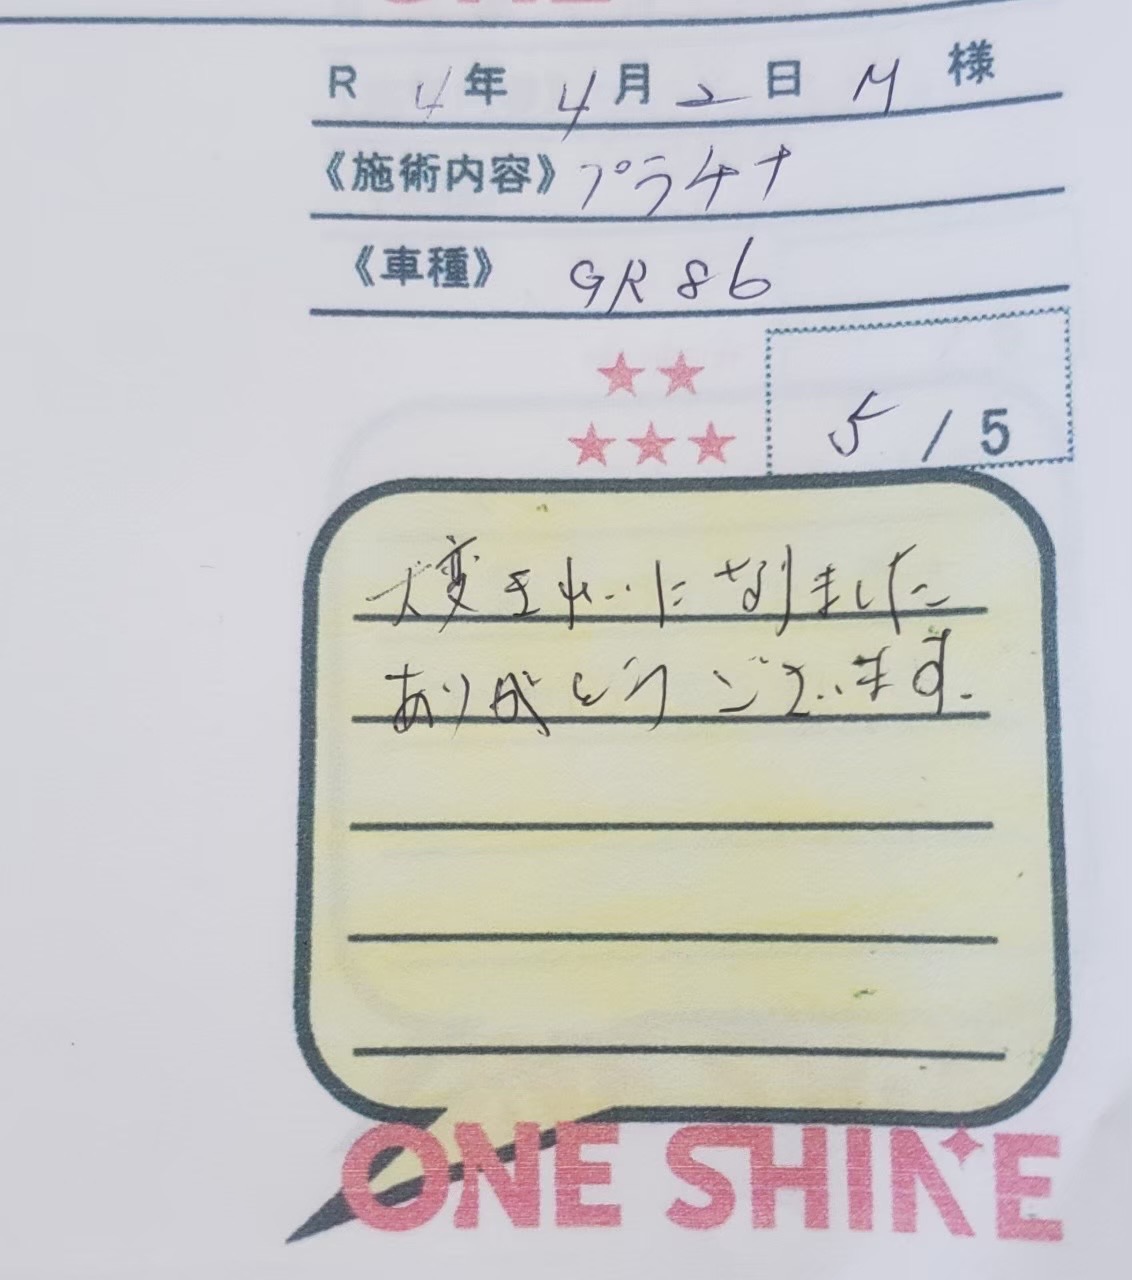 R 4年 4月 2日 M 様
《施術内容》プラチナ
《車種》 GR86
5 / 5
大変きれいになりました
ありがとうございます.
ONE SHINE